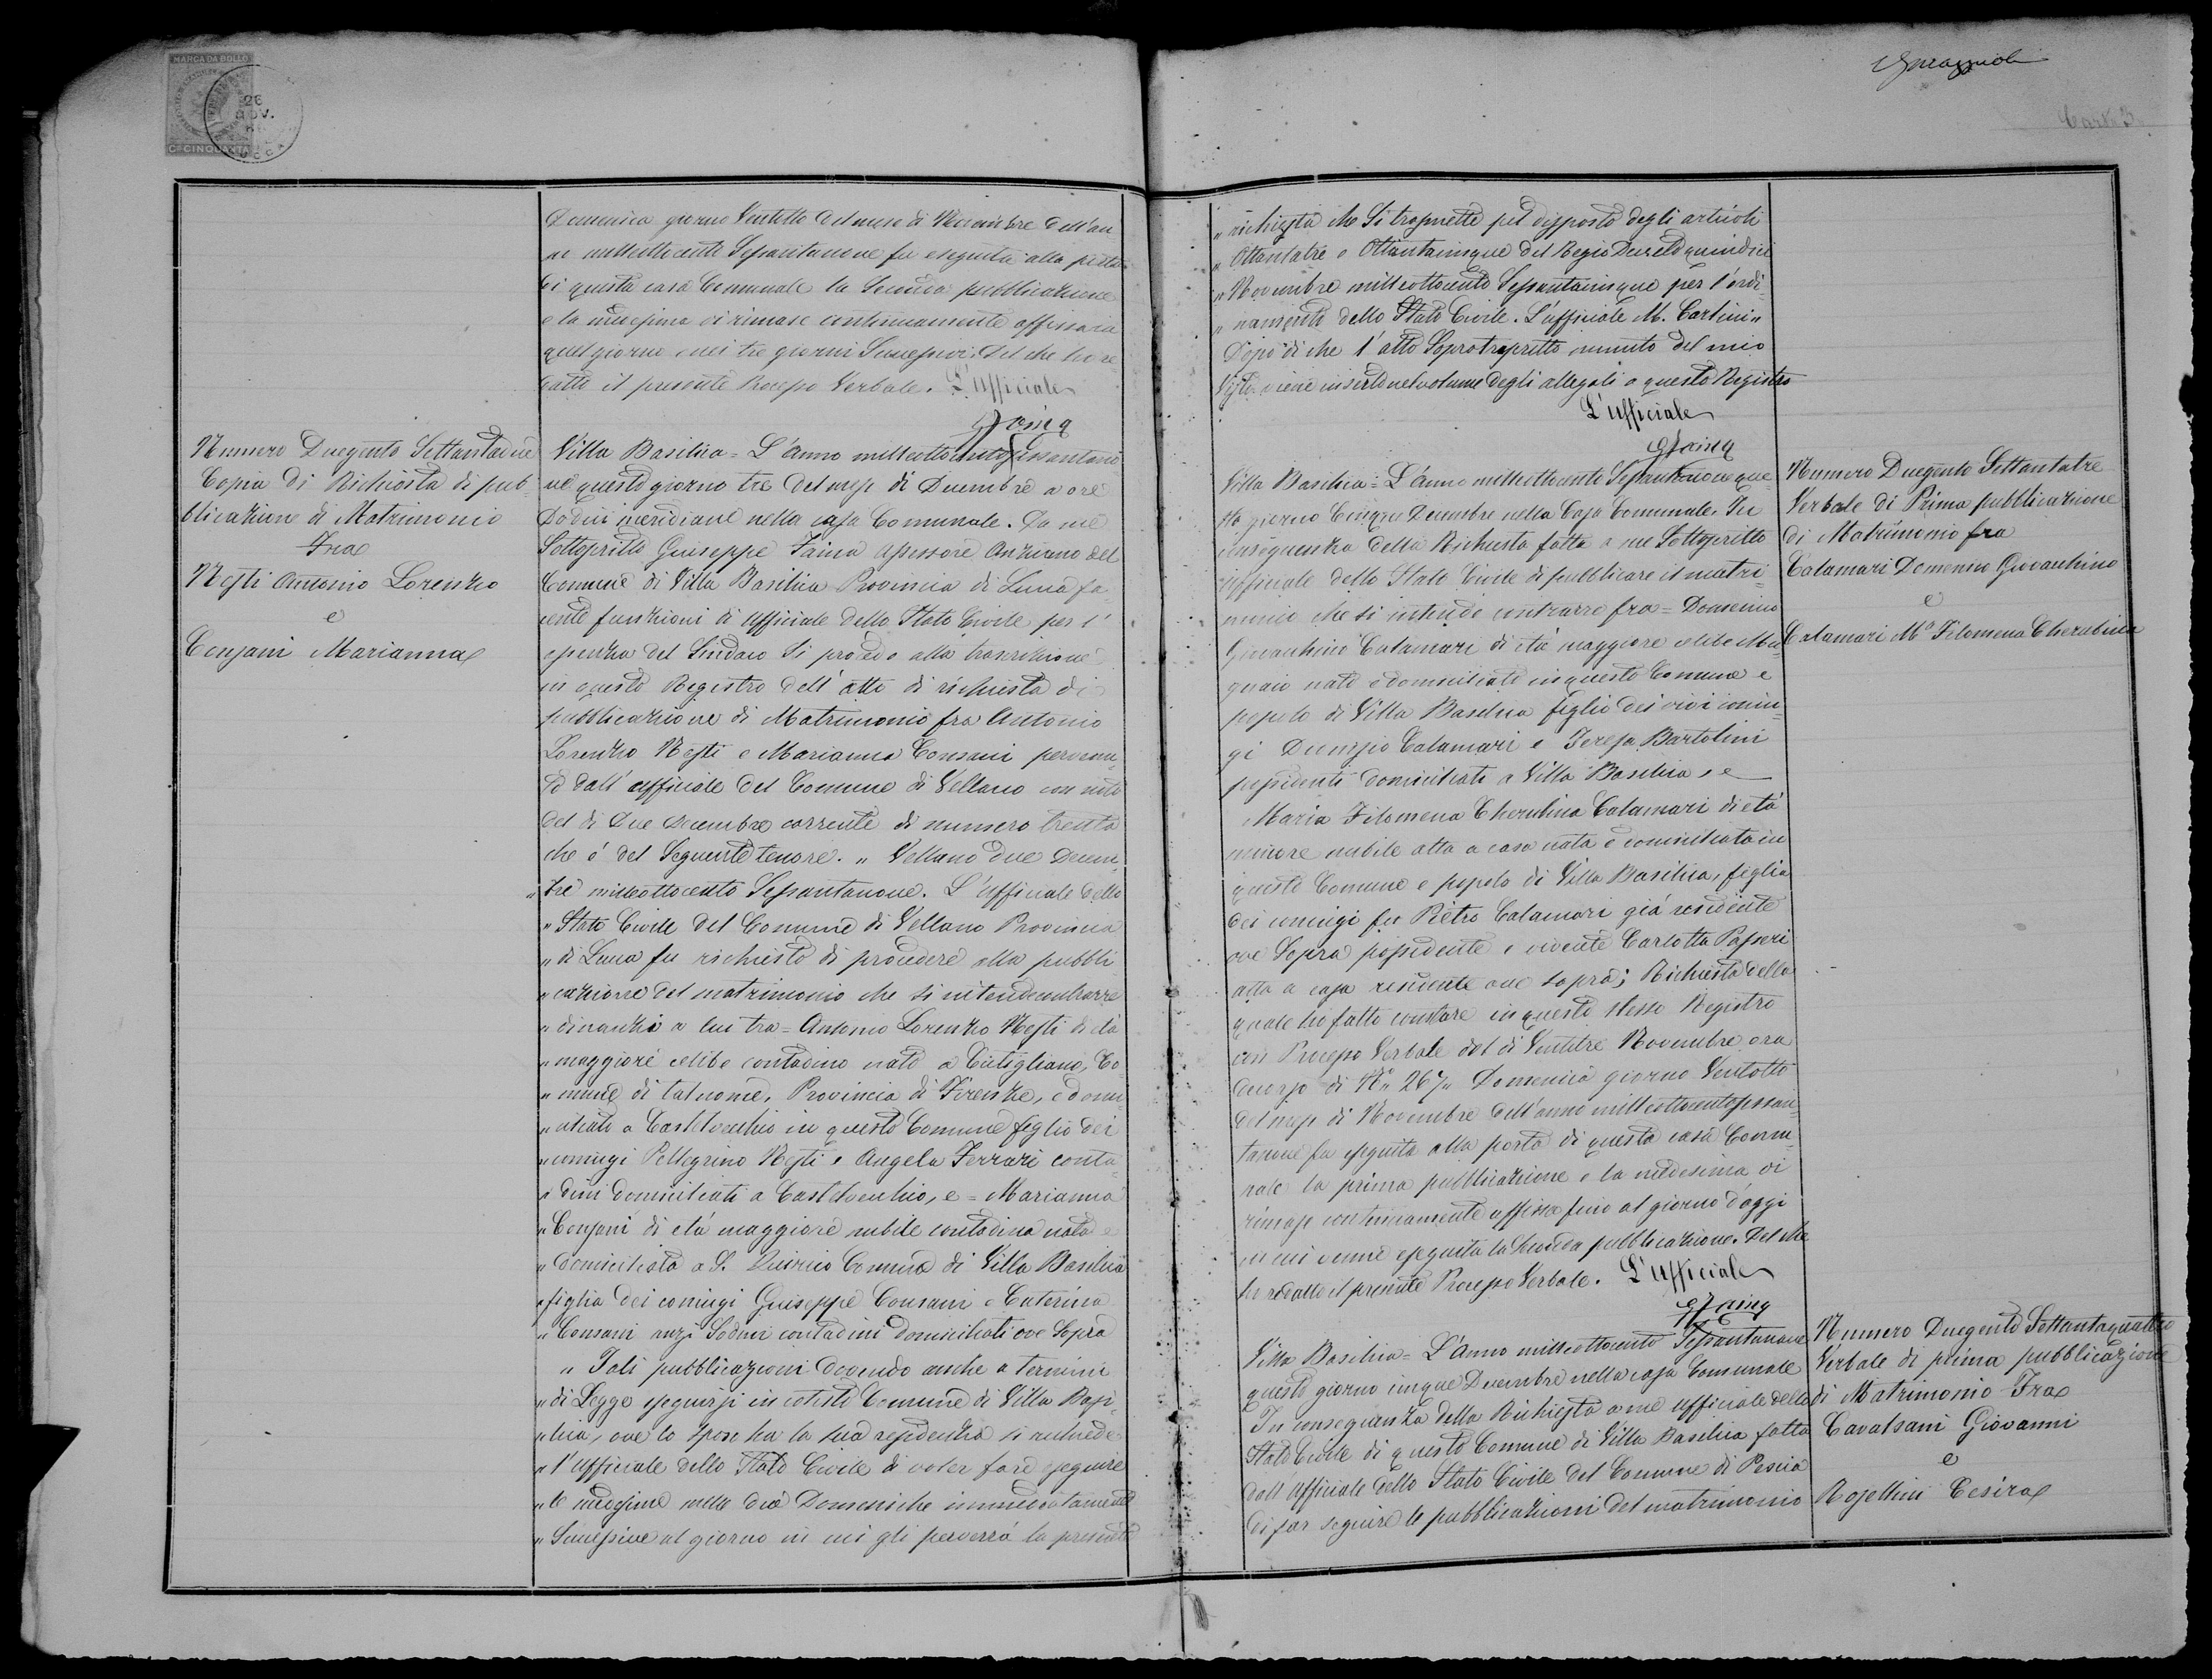 MARCA DA BOLLO
26
NOV.
LUCCA
Ct CINQUANTA
Carte 3
Domenica giorno Ventotto del mese di Novembre dell'an
no milleottocento Sessantanove fu eseguita alla porta
di questa casa Comunale la Seconda pubblicazione
e la medesima vi rimase continuamente affissa in
quel giorno e nei tre giorni Successivi. Del che ho re
datto il presente Processo Verbale. L'Ufficiale
GFaina
Numero Duegento Settantadue
Copia di Richiesta di pub-
blicazione di Matrimonio
Fra
Nesti Antonio Lorenzo
e
Consani Marianna
Villa Basilica = L'Anno milleottocentosessantano
ve questo giorno tre del mese di Decembre a ore
Dodici meridiane nella casa Comunale. Da me
Sottoscritto Giuseppe Faina Assessore Anziano del
Comune di Villa Basilica Provincia di Lucca fa
cente funzioni di Ufficiale dello Stato Civile per l'
assenza del Sindaco Si procede alla trascrizione
in questo Registro dell'atto di richiesta di
pubblicazione di Matrimonio fra Antonio
Lorenzo Nesti e Marianna Consani pervenu-
to dall'ufficiale del Comune di Vellano con nota
del di Due Decembre corrente di numero trenta
che é del Seguente tenore. „ Vellano due Decem
„ bre milleottocento Sessantanove. L'ufficiale dello
„ Stato Civile del Comune di Vellano Provincia
„ di Lucca fu richiesto di procedere alla pubbli
„ cazione del matrimonio che si intende contrarre
„ dinanzi a lui tra = Antonio Lorenzo Nesti di età
„ maggiore celibe contadino nato a Cutigliano, Co-
„ mune di tal nome, Provincia di Firenze, e domi
„ ciliato a Castelvecchio in questo Comune figlio dei
„ coniugi Pellegrino Nesti e Angela Ferrari conta-
„ dini domiciliati a Castelvecchio, e = Marianna
„ Consani di età maggiore nubile contadina nata e
„ domiciliata a S. Quirico Comune di Villa Basilica
„ figlia dei coniugi Giuseppe Consani e Caterina
„ Consani anzi Sodini contadini domiciliati ove Sopra
„ Tali pubblicazioni dovendo anche a termini
„ di Legge eseguirsi in cotesto Comune di Villa Basi-
„ lica, ove lo sposa ha la sua residenza si richiede
„ l'Ufficiale dello Stato Civile di voler fare eseguire
„ le medesime nelle due Domeniche immediatamente
„ Successive al giorno in cui gli perverrà la presente
„ richiesta che Si trasmette pel disposto degli articoli
„ Ottantatre e Ottantacinque del Regio Decreto quindici
„ Novembre milleottocento Sessantacinque per l'ordi-
„ namento dello Stato Civile. L'ufficiale M. Cartini „
Dopo di che l'atto Sopratrascritto munito del mio
Visto viene inserto nel volume degli allegati a questo Registro
L'Ufficiale
GFaina
Villa Basilica = L'Anno milleottocento Sessantanove que-
sto giorno Cinque Decembre nella Casa Comunale. In
conseguenza della Richiesta fatta a me Sottoscritto
Ufficiale dello Stato Civile di pubblicare il matri-
monio che si intende contrarre fra = Domenico
Giovanchino Calamari di età maggiore celibe Mu-
gnaio nato e domiciliato in questo Comune e
popolo di Villa Basilica figlio dei vivi coniu-
gi Dionisio Calamari e Teresa Bartolini
possidenti domiciliati a Villa Basilica, e
Maria Filomena Cherubina Calamari di età
minore nubile atta a casa nata e domiciliata in
questo Comune e popolo di Villa Basilica, figlia
dei coniugi fu Pietro Calamari già residente
ove Sopra possidente e vivente Carlotta Passeri
atta a casa residente ove sopra; Richiesta della
quale ho fatto constare in questo stesso Registro
con Processo Verbale del di Ventitre Novembre ora
decorso di N.° 267 „ Domenica giorno Ventotto
del mese di Novembre dell'anno milleottocentosessan-
tanove fu eseguita alla porta di questa casa Comu-
nale la prima pubblicazione e la medesima vi
rimase continuamente affissa fino al giorno d'oggi
in cui venne eseguita la Seconda pubblicazione. Del che
ho redatto il presente Processo Verbale. L'Ufficiale
GFaina
Numero Duegento Settantatre
Verbale di Prima pubblicazione
di Matrimonio fra
Calamari Domenico Giovanchino
e
Calamari Mª Filomena Cherubina
Villa Basilica = L'Anno milleottocento Sessantanove
questo giorno cinque Decembre nella casa Comunale
In conseguenza della Richiesta a me ufficiale dello
Stato Civile di questo Comune di Villa Basilica fatta
dall'Ufficiale dello Stato Civile del Comune di Pescia
di far seguire le pubblicazioni del matrimonio
Numero Duegento Settantaquattro
Verbale di prima pubblicazione
di Matrimonio Fra
Cavalsani Giovanni
e
Rosellini Cesira